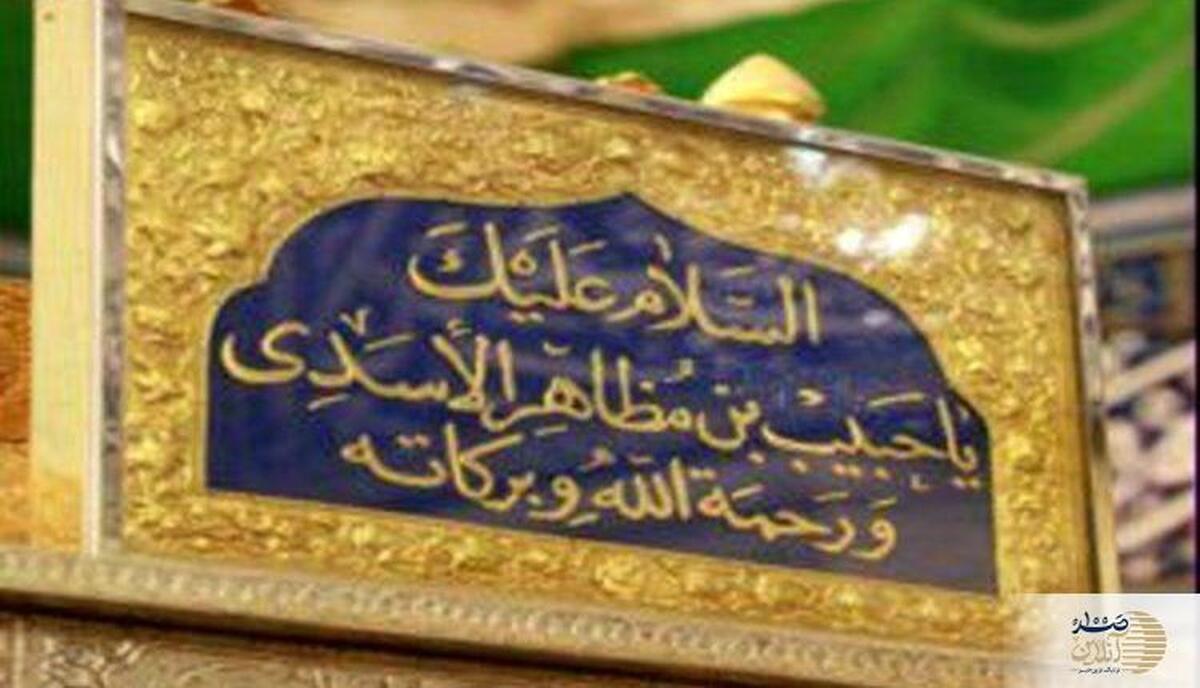 السَّلَامُ عَلَيْكَ
يَا حَبِيْب بن مُظاهِر الأسَدِي
وَرَحمَة اللهُ وِبَركاته
صدا
آنلاین